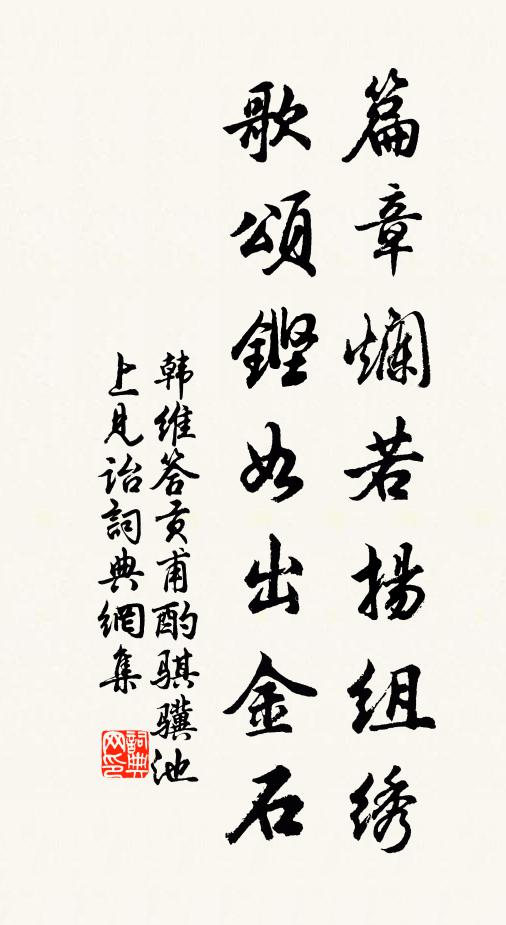 篇章爛若揚组绣
歌頌鏗如出金石
韩维答贡甫酌骐骥池
上見詒詞典網集
詞典网印